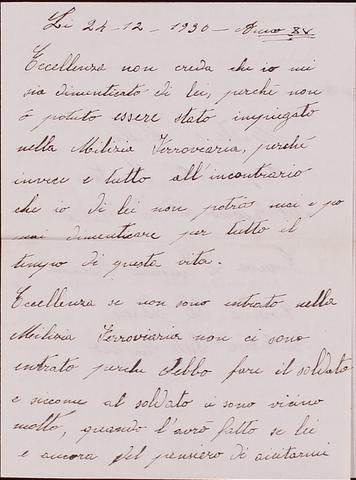 Li 24-12-1930-Anno XV
Eccellenza non creda che io mi
sia dimenticato di lei, perchè non
ò potuto essere stato impiegato
nella Milizia Ferroviaria, perchè
invece e tutto all'incontrario
che io di lei non potrò mai e po
mai dimenticare per tutto il
tempo di questa vita.
Eccellenza se non sono entrato nella
Milizia Ferroviaria non ci sono
entrato perchè debbo fare il soldato
e siccome al soldato ci sono vicino
molto, quando l'avrò fatto se lei
e ancora del pensiero di aiutarmi